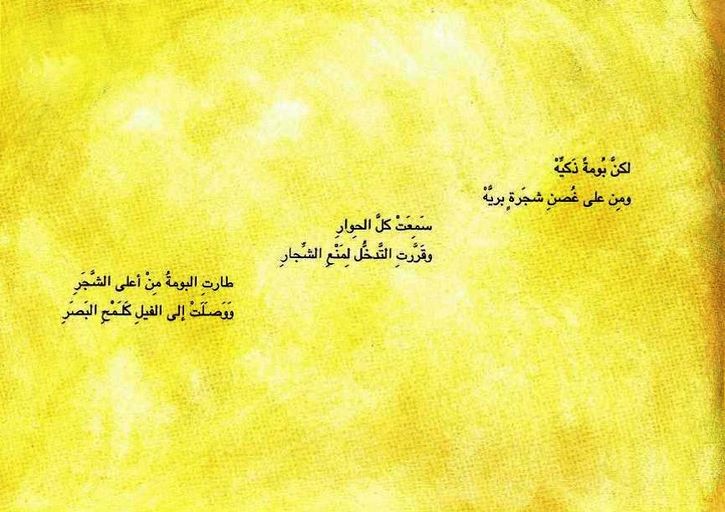 لكنَّ بُومةً ذَكيَّهْ
ومِن على غُصنِ شجَرةٍ بريَّهْ
سَمِعَتْ كلَّ الحِوارِ
وقَرَّرتِ التَّدخُّل لِمَنْعِ الشِّجارِ
طارتِ البومةُ مِنْ أعلى الشَّجَرِ
وَوَصَلَتْ إلى الفيلِ كَلَمْحِ البَصَرِ